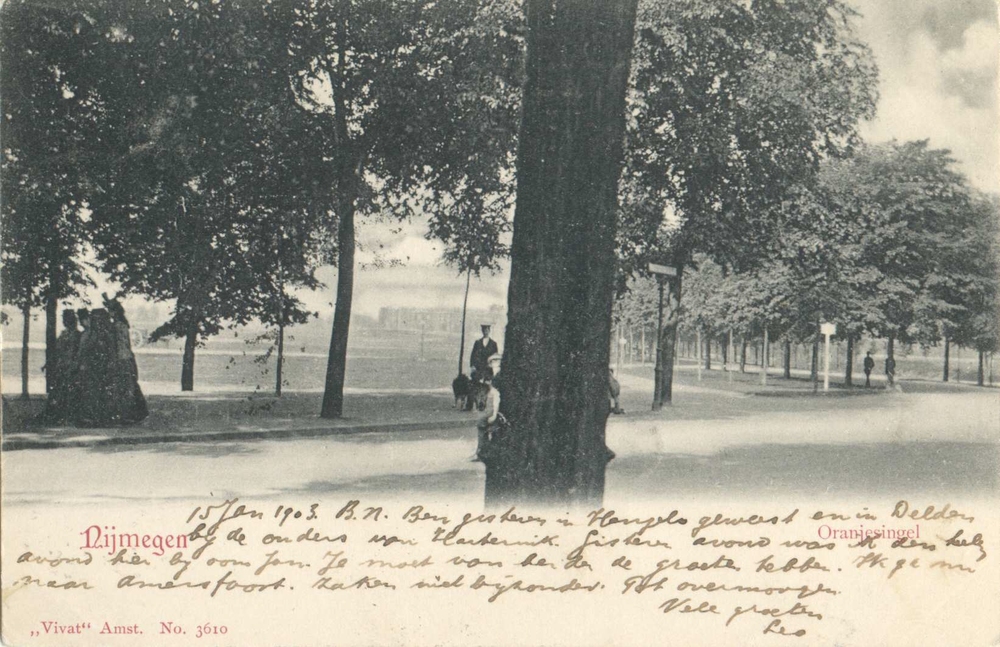 15 Jan 1903 B.N. Ben gisteren in Hengelo geweest en in Delden
Nijmegen
Oranjesingel
bij de ouders van Gisteren avond was ik den heelen
avond hier bij oom Jan. Je moet van beiden de groeten hebben. Ik ga nu
naar Amersfoort. Zaken niet bijzonder. Tot overmorgen.
Vele groeten
Leo
„Vivat“ Amst. No. 3610